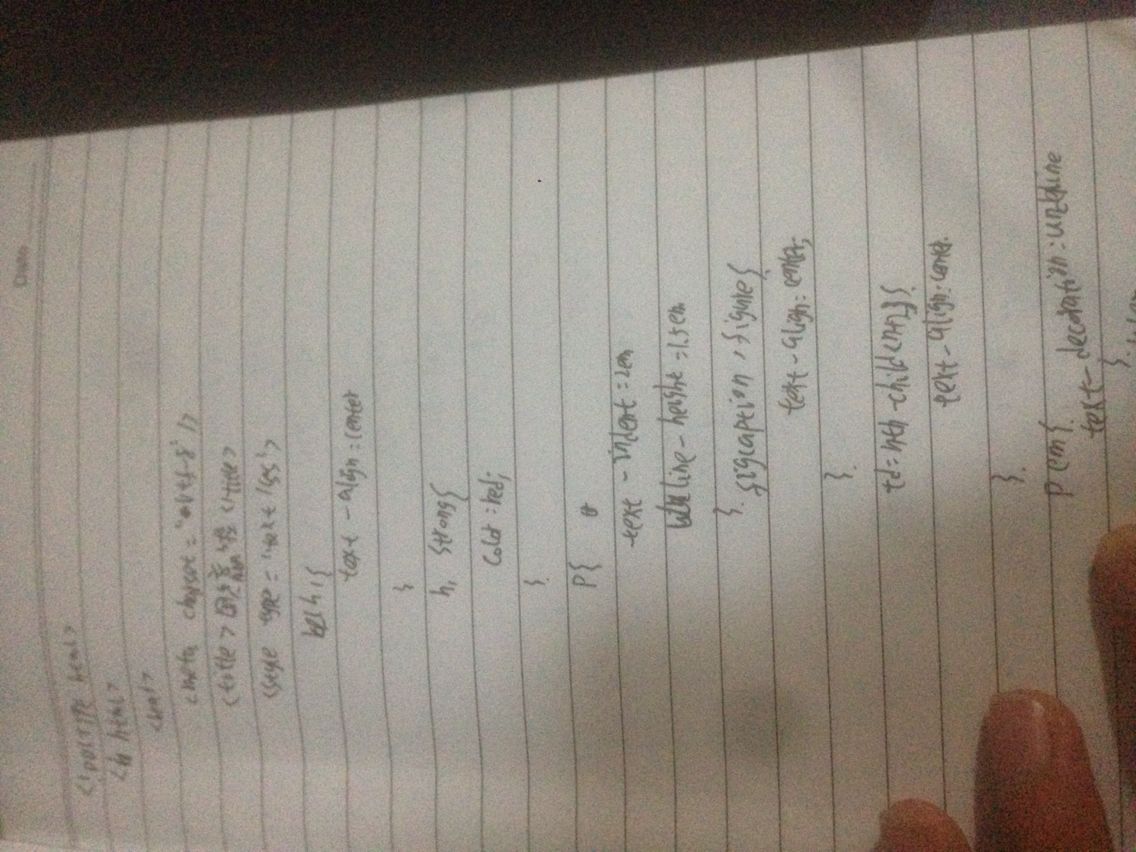 Date
<!DOCTYPE html>
<html>
<head>
<meta charset="utf-8" />
<style type="text/css">
h1{
text-align:center
}
h1 strong{
color:red;
}
p{
text-indent:2em
line-height:1.5em
}
figcaption,figure{
text-align:center;
}
text-align:center.
}
p em{
text-decoration:underline
}